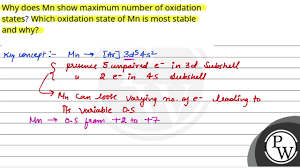 Why does Mn show maximum number of oxidation
states? Which oxidation state of Mn is most stable
and why?
Key concept :- Mn → [Ar] 3d⁵ 4s²
presence 5 unpaired e⁻ in 3d subshell
" 2 e⁻ in 4s subshell
Mn can loose varying no. of e⁻ leading to
its variable O.S
Mn → O.S from +2 to +7
PW